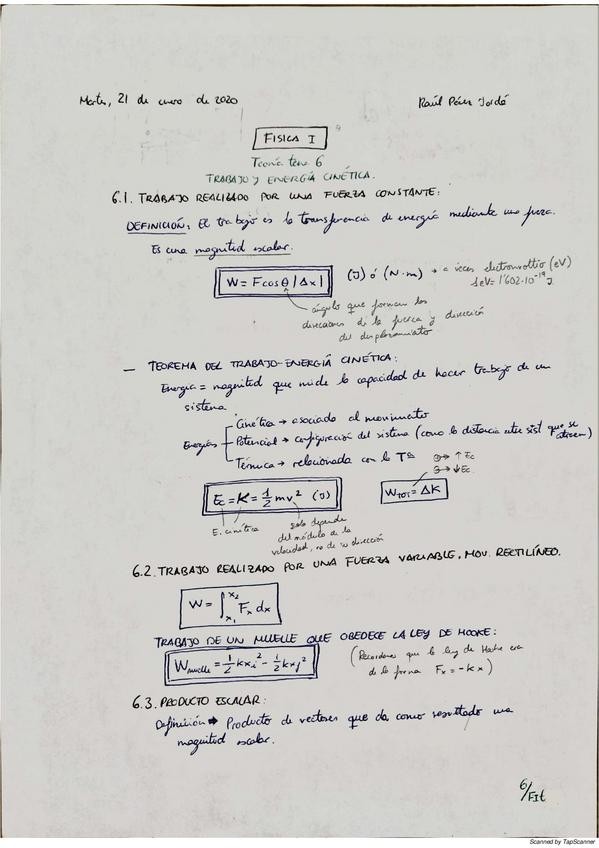 Martes, 21 de enero de 2020
Raúl Pérez Jordá
FISICA I
Teoría tema 6
TRABAJO Y ENERGÍA CINÉTICA.
6.1. TRABAJO REALIZADO POR UNA FUERZA CONSTANTE:
DEFINICIÓN: El trabajo es la transferencia de energía mediante una fuerza.
Es una magnitud escalar.
W = F cos θ |Δx| (J) ó (N·m) → a veces electronvoltio (eV)
1eV = 1'602·10⁻¹⁹ J
ángulo que forman las
direcciones de la fuerza y dirección
del desplazamiento
— TEOREMA DEL TRABAJO-ENERGÍA CINÉTICA:
Energía = magnitud que mide la capacidad de hacer trabajo de un
sistema
Cinética → asociada al movimiento
Energías Potencial → configuración del sistema (como la distancia entre sist que se
atraen)
Térmica → relacionada con la Tª
→ ↑ Ec
→ ↓ Ec
Ec = K = 1/2 mv² (J)
W_TOT = ΔK
E. cinética
solo depende
del módulo de la
velocidad, no de su dirección
6.2. TRABAJO REALIZADO POR UNA FUERZA VARIABLE, MOV. RECTILÍNEO.
W = ∫_{x₁}^{x₂} Fx dx
TRABAJO DE UN MUELLE QUE OBEDECE LA LEY DE HOOKE:
W_muelle = 1/2 k x_i² - 1/2 k x_f²
(Recordemos que la ley de Hooke era
de la forma Fx = -kx)
6.3. PRODUCTO ESCALAR:
Definición → Producto de vectores que da como resultado una
magnitud escalar.
6/FIt
Scanned by TapScanner